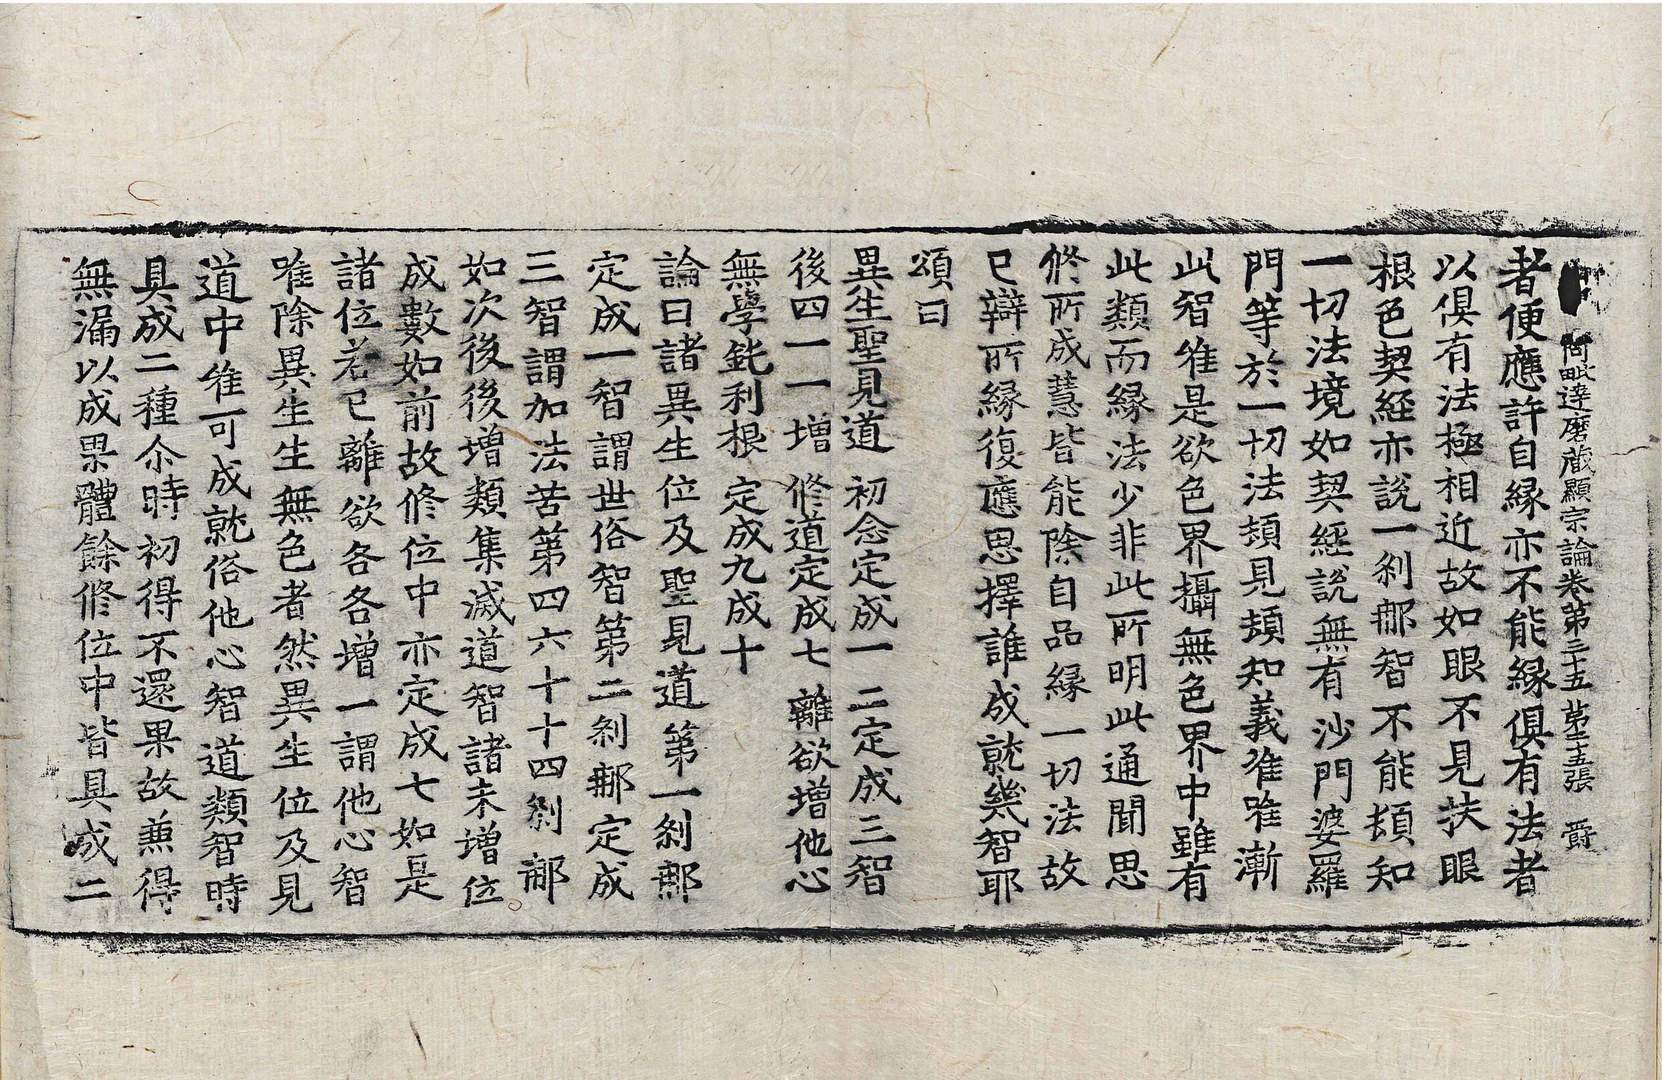 阿毗達磨藏顯宗論卷第三十五 第十五張 爵
者便應許自緣亦不能緣俱有法者
以俱有法極相近故如眼不見扶眼
根色契經亦說一剎那智不能頓知
一切法境如契經說無有沙門婆羅
門等於一切法頓見頓知義准唯漸
此智唯是欲色界攝無色界中雖有
此類而緣法少非此所明此通聞思
修所成慧皆能除自品緣一切法故
已辯所緣復應思擇誰成就幾智耶
頌曰
異生聖見道 初念定成一 二定成三智
後四一一增 修道定成七 離欲增他心
無學鈍利根 定成九成十
論曰諸異生位及聖見道第一剎那
定成一智謂世俗智第二剎那定成
三智謂加法苦第四六十十四剎那
如次後後增類集滅道智諸未增位
成數如前故修位中亦定成七如是
諸位若已離欲各各增一謂他心智
唯除異生生無色者然異生位及見
道中唯可成就俗他心智道類智時
具成二種尒時初得不還果故兼得
無漏以成果體餘修位中皆具成二